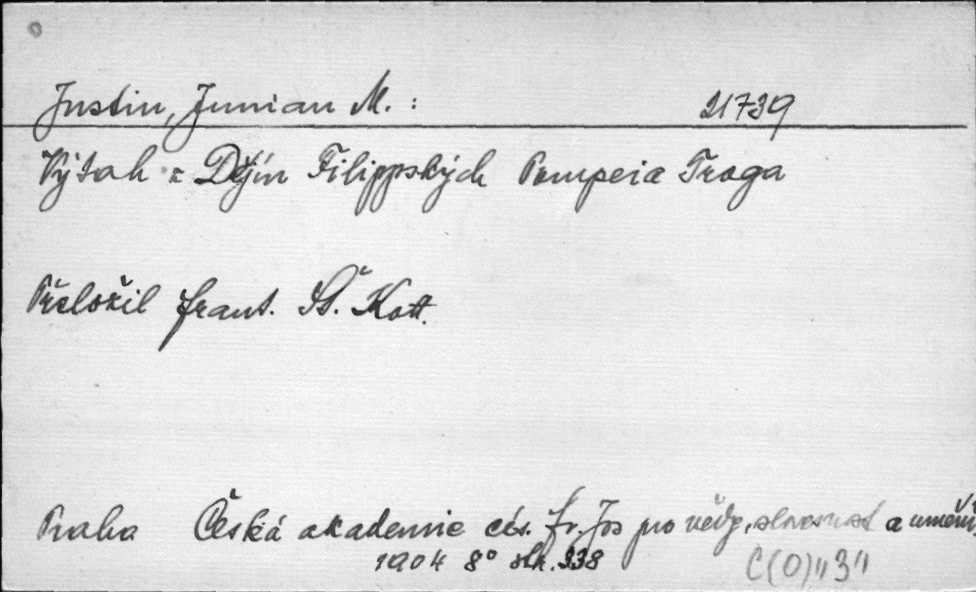 Justin, Junian M. : 21739
Výtah z Dějin Filippských Pompeia Troga
Přeložil frant. Št. Kott.
Praha Česká akademie cís. Fr. Jos pro vědy, slovesnost a umění.
1904 8° str. 338
C(O)"3"